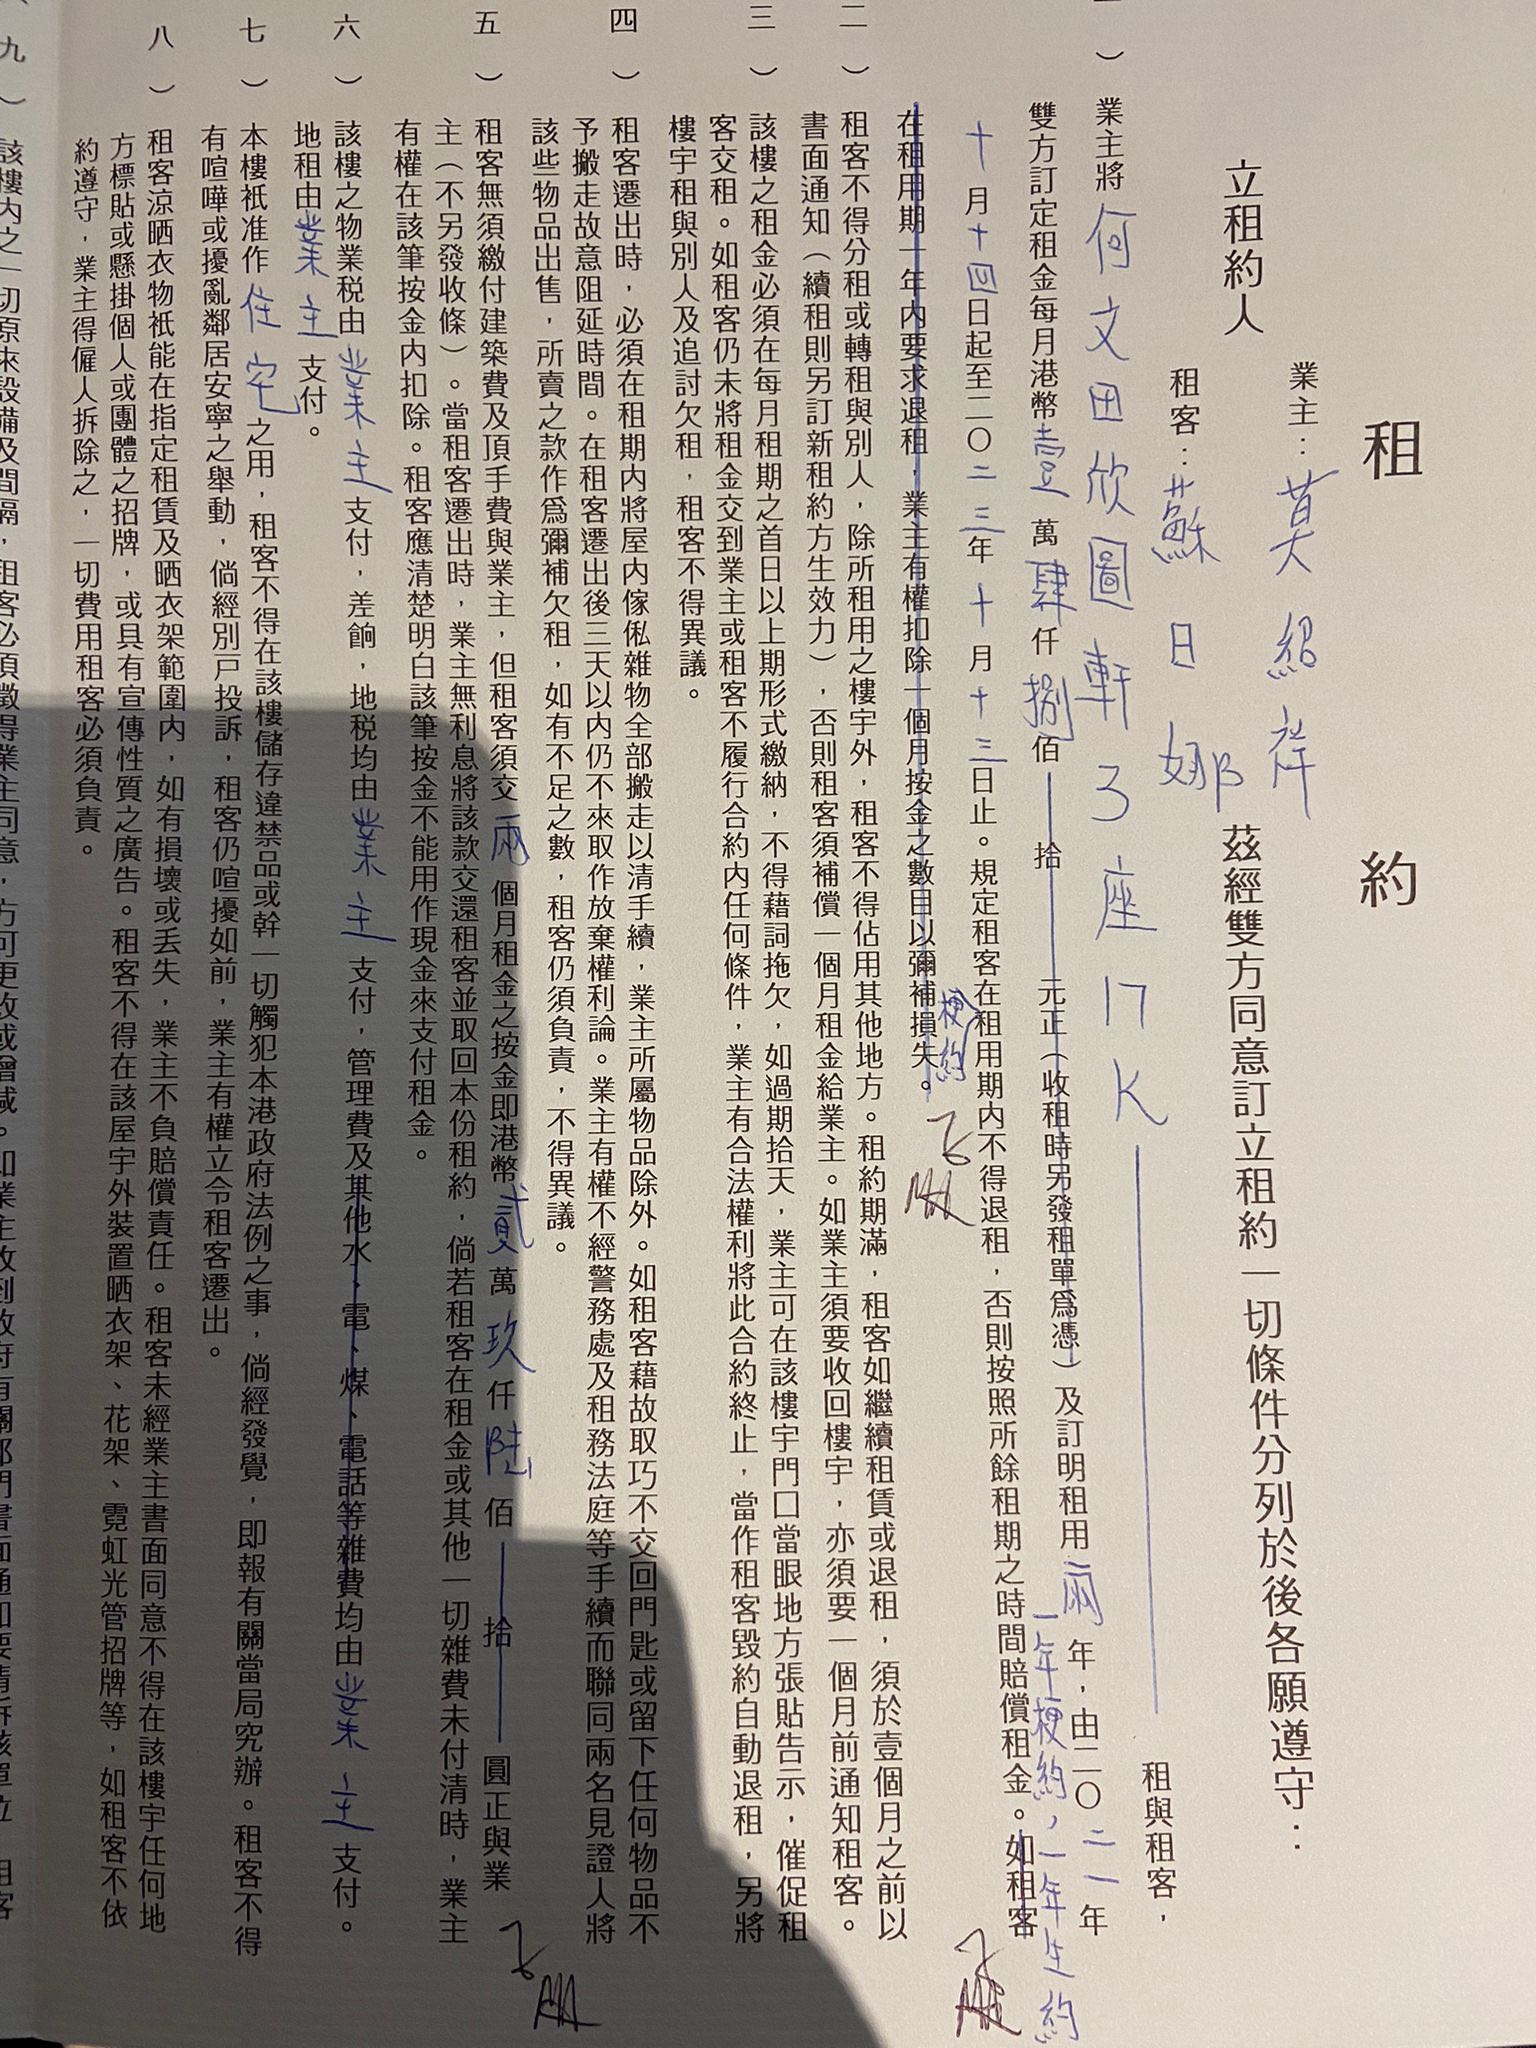 租約
業主：莫紹祥
立租約人
租客：蘇日娜
茲經雙方同意訂立租約一切條件分列於後各願遵守：
一）業主將何文田欣圖軒3座17K租與租客，
雙方訂定租金每月港幣壹萬肆仟捌佰拾元正（收租時另發租單爲憑）及訂明租用兩年，由二〇二一年
一年梗約，一年生約
十月十四日起至二〇二三年十月十三日止。規定租客在租用期內不得退租，否則按照所餘租期之時間賠償租金。如租客
梗約
在租用期一年內要求退租，業主有權扣除一個月按金之數目以彌補損失。
二）租客不得分租或轉租與別人，除所租用之樓宇外，租客不得佔用其他地方。租約期滿，租客如繼續租賃或退租，須於壹個月之前以
書面通知（續租則另訂新租約方生效力），否則租客須補償一個月租金給業主。如業主須要收回樓宇，亦須要一個月前通知租客。
三）該樓之租金必須在每月租期之首日以上期形式繳納，不得藉詞拖欠，如過期拾天，業主可在該樓宇門口當眼地方張貼告示，催促租
客交租。如租客仍未將租金交到業主或租客不履行合約內任何條件，業主有合法權利將此合約終止，當作租客毀約自動退租，另將
樓宇租與別人及追討欠租，租客不得異議。
四）租客遷出時，必須在租期內將屋內傢俬雜物全部搬走以清手續，業主所屬物品除外。如租客藉故取巧不交回門匙或留下任何物品不
予搬走故意阻延時間。在租客遷出後三天以內仍不來取作放棄權利論。業主有權不經警務處及租務法庭等手續而聯同兩名見證人將
該些物品出售，所賣之款作爲彌補欠租，如有不足之數，租客仍須負責，不得異議。
五）租客無須繳付建築費及頂手費與業主，但租客須交兩個月租金之按金即港幣貳萬玖仟陸佰拾圓正與業
主（不另發收條）。當租客遷出時，業主無利息將該款交還租客並取回本份租約，倘若租客在租金或其他一切雜費未付清時，業主
有權在該筆按金內扣除。租客應清楚明白該筆按金不能用作現金來支付租金。
六）該樓之物業税由業主支付，差餉，地税均由業主支付，管理費及其他水、電、煤、電話等雜費均由業主支付。
地租由業主支付。
七）本樓衹准作住宅之用，租客不得在該樓儲存違禁品或幹一切觸犯本港政府法例之事，倘經發覺，即報有關當局究辦。租客不得
有喧嘩或擾亂鄰居安寧之舉動，倘經別戸投訴，租客仍喧擾如前，業主有權立令租客遷出。
八）租客涼晒衣物衹能在指定租賃及晒衣架範圍內，如有損壞或丟失，業主不負賠償責任。租客未經業主書面同意不得在該樓宇任何地
方標貼或懸掛個人或團體之招牌，或具有宣傳性質之廣告。租客不得在該屋宇外裝置晒衣架、花架、霓虹光管招牌等，如租客不依
約遵守，業主得僱人拆除之，一切費用租客必須負責。
九）該樓內之一切原來設備及間隔，租客必須徵得業主同意，方可更改或增減。如業主收到政府有關部門書面通知要清拆該單位